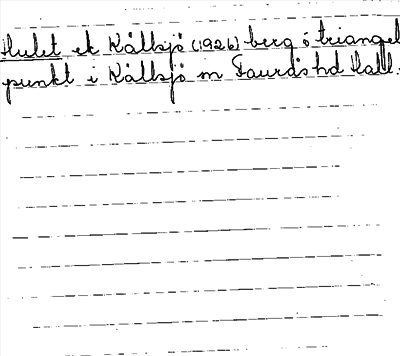 Hulet ek Källsjö (1926) berg ö triangel
punkt i Källsjö sn Faurås hd Hall.